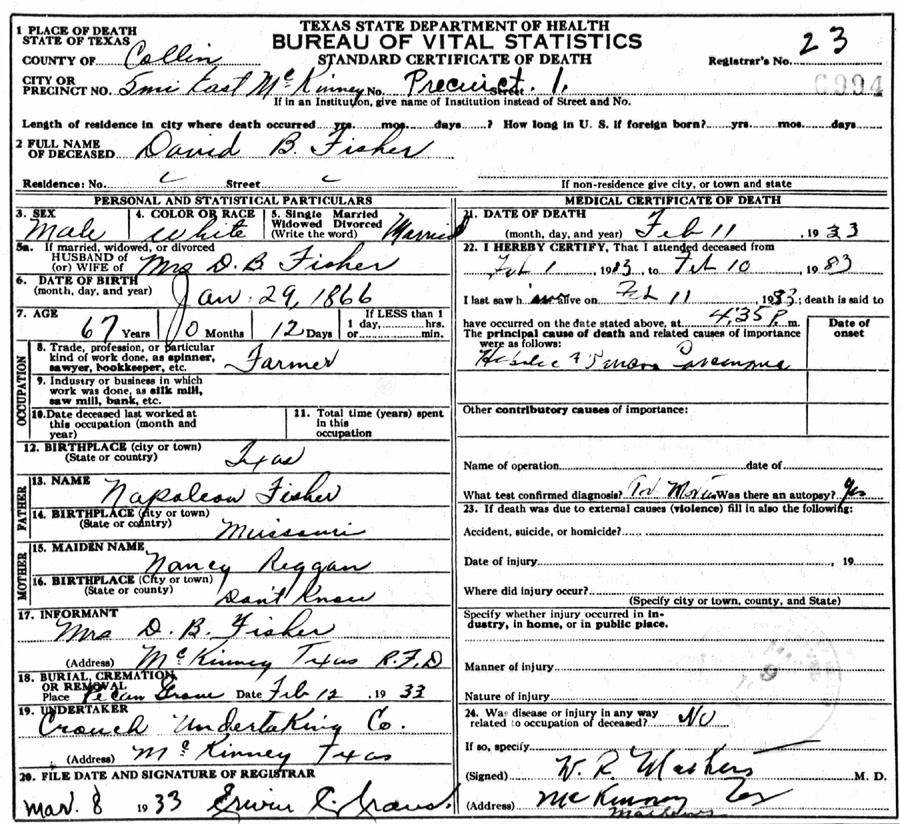 TEXAS STATE DEPARTMENT OF HEALTH
BUREAU OF VITAL STATISTICS
STANDARD CERTIFICATE OF DEATH
Registrar's No. 23
6994
1 PLACE OF DEATH
STATE OF TEXAS
COUNTY OF Collin
CITY OR
PRECINCT NO. 5mi East McKinney No. Precinct. 1. Street
If in an Institution, give name of Institution instead of Street and No.
Length of residence in city where death occurred yrs. mos. days ? How long in U. S. if foreign born? yrs. mos. days
2 FULL NAME
OF DECEASED David B. Fisher
Residence: No. Street
If non-residence give city, or town and state
PERSONAL AND STATISTICAL PARTICULARS
3. SEX Male
4. COLOR OR RACE White
5. Single Married
Widowed Divorced
(Write the word) Married
5a. If married, widowed, or divorced
HUSBAND of
(or) WIFE of Mrs D. B Fisher
6. DATE OF BIRTH
(month, day, and year) Jan. 29, 1866
7. AGE
67 Years 0 Months 12 Days
If LESS than 1
1 day, hrs.
or min.
OCCUPATION
8. Trade, profession, or particular
kind of work done, as spinner,
sawyer, bookkeeper, etc. Farmer
9. Industry or business in which
work was done, as silk mill,
saw mill, bank, etc.
10. Date deceased last worked at
this occupation (month and
year)
11. Total time (years) spent
in this
occupation
12. BIRTHPLACE (city or town)
(State or country) Texas
FATHER
13. NAME Napoleon Fisher
14. BIRTHPLACE (city or town)
(State or country) Missouri
MOTHER
15. MAIDEN NAME Nancy Reggan
16. BIRTHPLACE (City or town)
(State or country) Don't Know
17. INFORMANT
Mrs D. B. Fisher
(Address) McKinney Texas R.F.D
18. BURIAL, CREMATION,
OR REMOVAL
Place Pecan Grove Date Feb 12, 1933
19. UNDERTAKER
Crouch Undertaking Co.
(Address) McKinney Texas
20. FILE DATE AND SIGNATURE OF REGISTRAR
Mar. 8 1933
MEDICAL CERTIFICATE OF DEATH
21. DATE OF DEATH
(month, day, and year) Feb 11, 1933
22. I HEREBY CERTIFY, That I attended deceased from
Feb 1 to Feb 10
I last saw h alive on Feb 11; death is said to
have occurred on the date stated above, at 4:35 P. m.
The principal cause of death and related causes of importance
were as follows:
Date of
onset
Other contributory causes of importance:
Name of operation date of
What test confirmed diagnosis? Was there an autopsy? Yes
23. If death was due to external causes (violence) fill in also the following:
Accident, suicide, or homicide?
Date of injury , 19
Where did injury occur?
(Specify city or town, county, and State)
Specify whether injury occurred in in-
dustry, in home, or in public place.
Manner of injury
Nature of injury
24. Was disease or injury in any way
related to occupation of deceased? No
If so, specify
(Signed) W. R. Mathers M. D.
(Address) McKinney Tex
Mathews